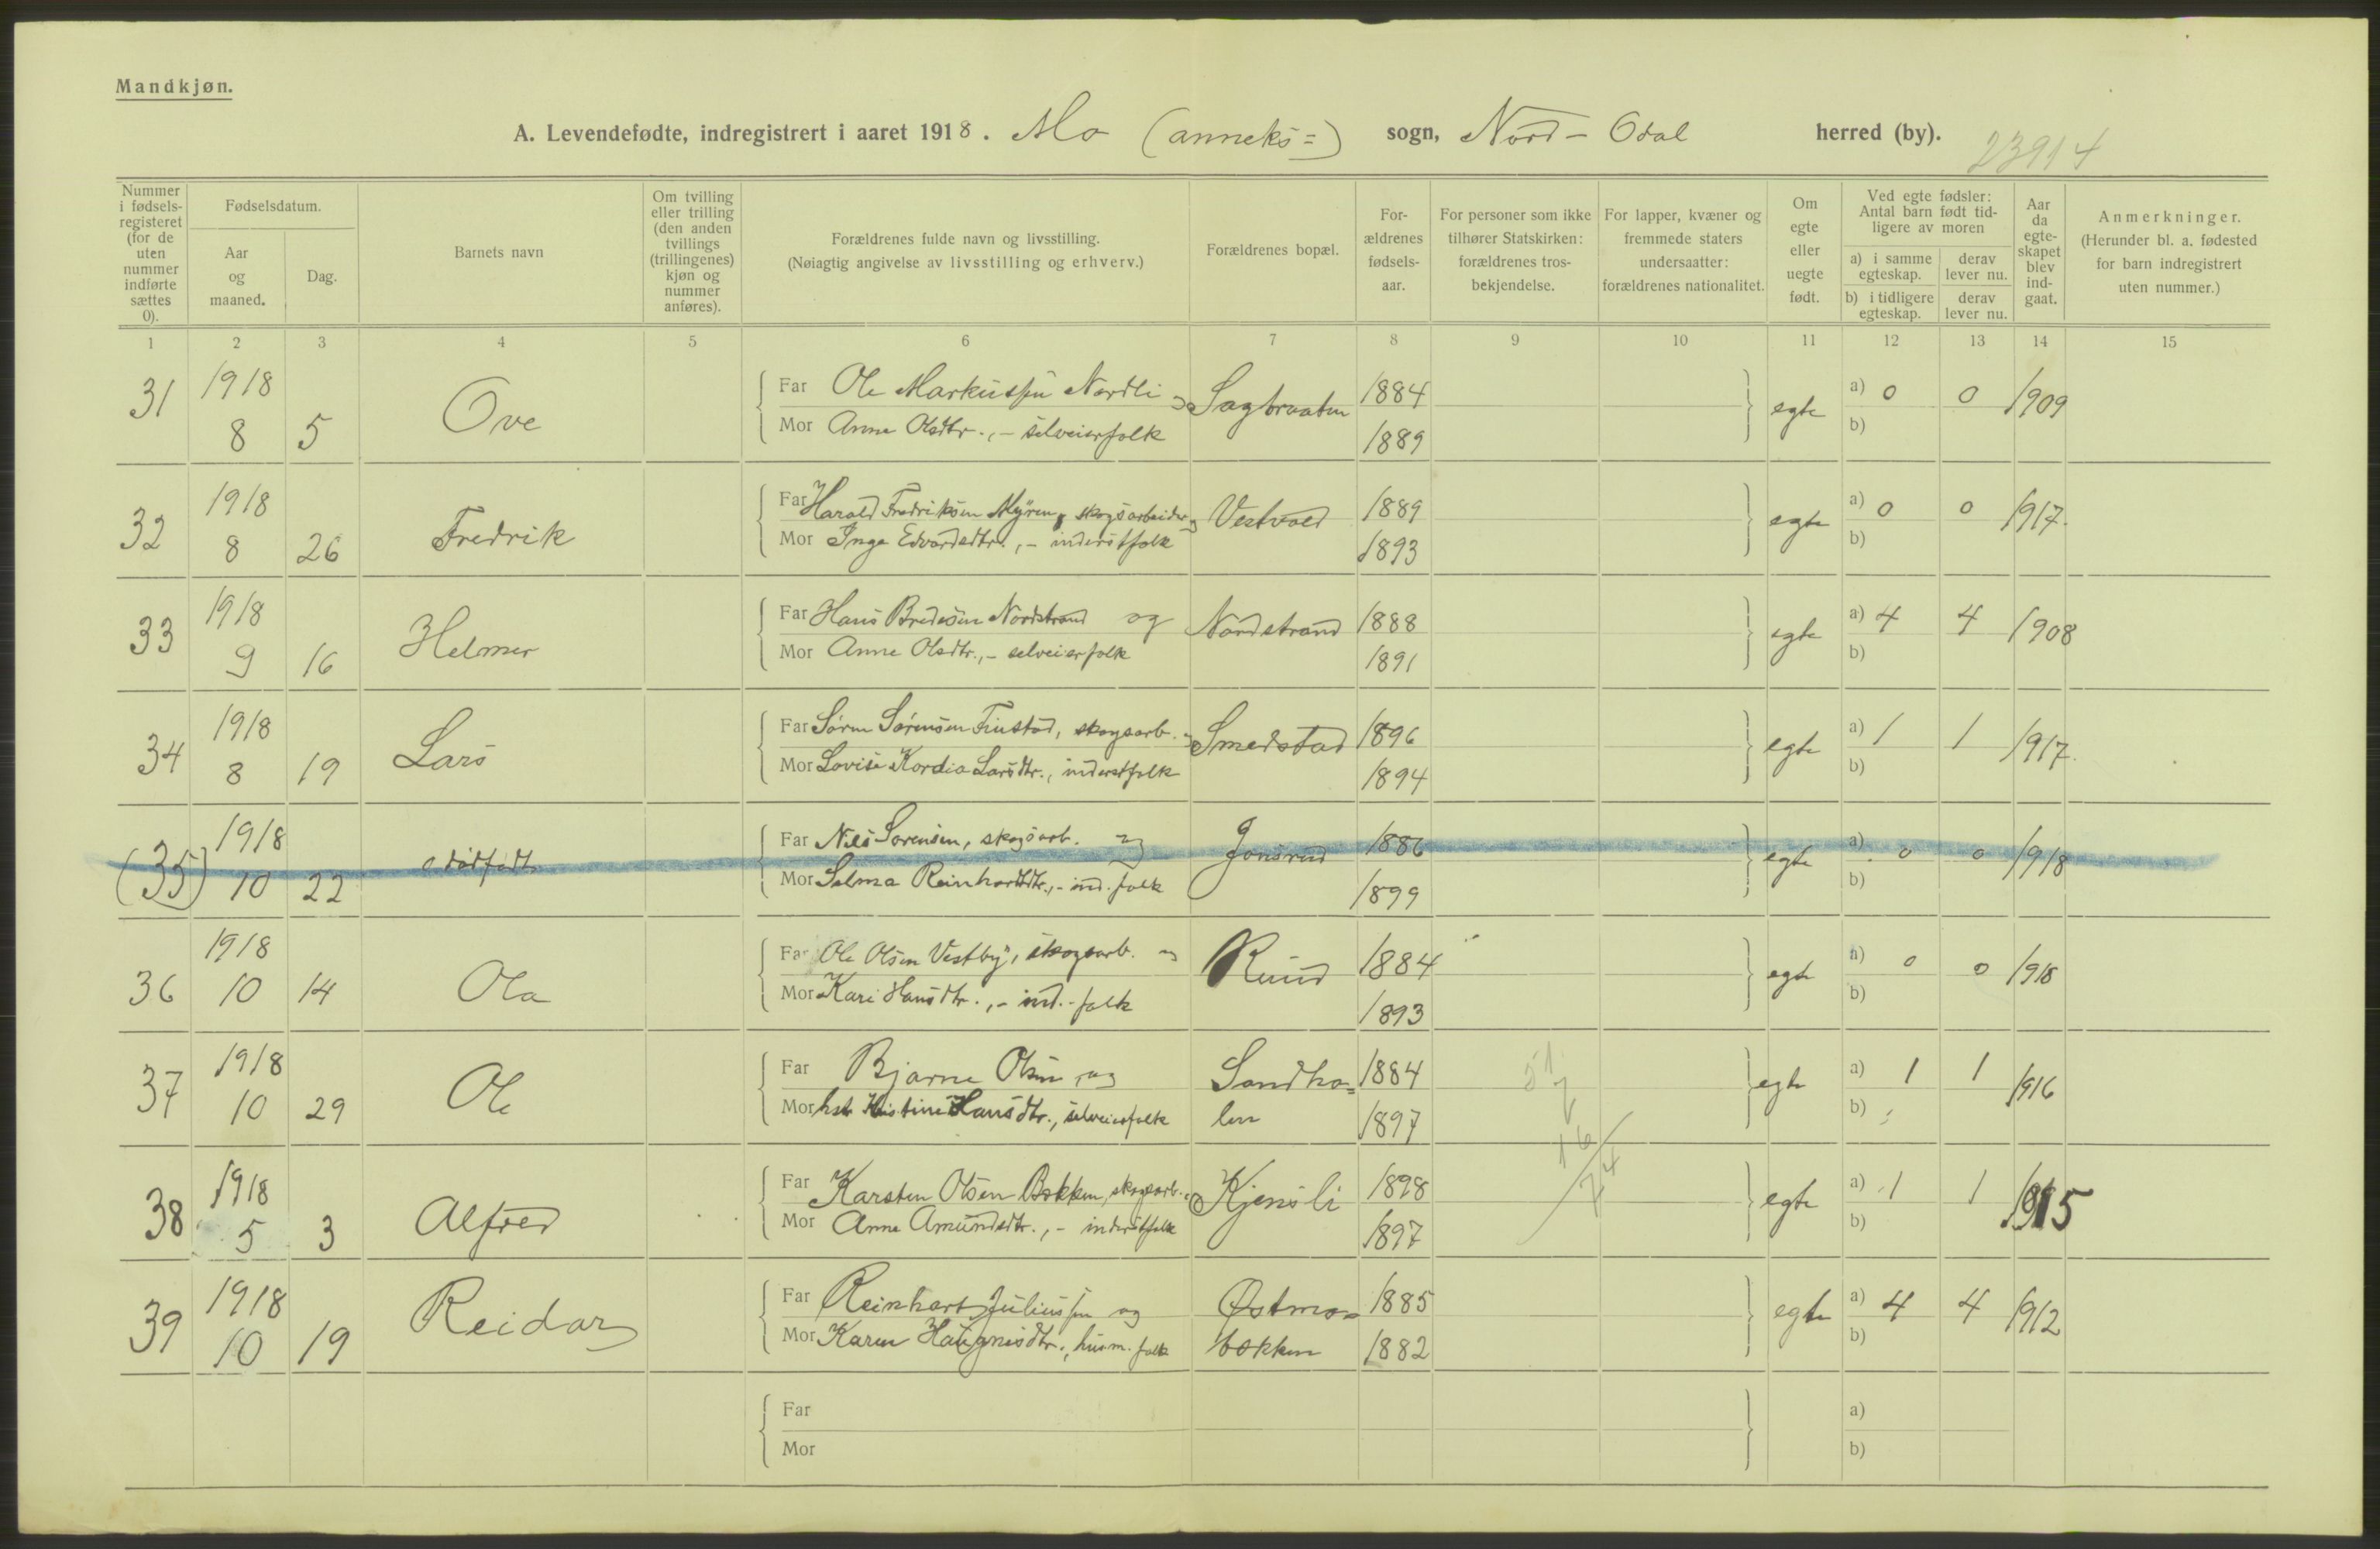 Mandkjøn.
A. Levendefødte, indregistrert i aaret 1918. Mo (anneks=) sogn, Nord-Odal herred (by). 23914
Nummer i fødsels-registeret (for de uten nummer indførte sættes 0).
Fødselsdatum.
Aar og maaned.
Dag.
Barnets navn
Om tvilling eller trilling (den anden tvillings (trillingenes) kjøn og nummer anføres).
Forældrenes fulde navn og livsstilling.
(Nøiagtig angivelse av livsstilling og erhverv.)
Forældrenes bopæl.
For-ældrenes fødsels-aar.
For personer som ikke tilhører Statskirken: forældrenes tros-bekjendelse.
For lapper, kvæner og fremmede staters undersaatter: forældrenes nationalitet.
Om egte eller uegte født.
Ved egte fødsler: Antal barn født tid-ligere av moren
a) i samme egteskap. derav lever nu.
b) i tidligere egteskap. derav lever nu.
Aar da egte-skapet blev ind-gaat.
Anmerkninger.
(Herunder bl. a. fødested for barn indregistrert uten nummer.)
1 2 3 4 5 6 7 8 9 10 11 12 13 14 15
31 1918 8 5 Ove
Far Ole Markussen Nordli og Sagbraaten 1884
Mor Anne Olsdtr., - selveierfolk 1889
egte a) 0 0 1909
b)
32 1918 8 26 Fredrik
Far Harald Fredriksen Myren, skogsarbeider og Vestvold 1889
Mor Inga Edvardsdtr., - inderstfolk 1893
egte a) 0 0 1917.
b)
33 1918 9 16 Helmer
Far Hans Bredesen Nordstrand og Nordstrand 1888
Mor Anne Olsdtr., - selveierfolk 1891
egte a) 4 4 1908
b)
34 1918 8 19 Lars
Far Søren Sørensen Finstad, skogsarb. og Smedstad 1896
Mor Lovise Kordia Larsdtr., inderstfolk 1894
egte a) 1 1 1917.
b)
(35) 1918 10 22 dødfødt
Far Nils Sørensen, skogsarb. og Jonsrud 1886
Mor Selma Reinhartdtr., - ind. folk 1899
egte a) 0 0 1918
b)
36 1918 10 14 Ola
Far Ole Olsen Vestby, skogsarb. og Ruud 1884
Mor Kari Hansdtr., - ind.-folk 1893
egte a) 0 0 1918
b)
37 1918 10 29 Ole
Far Bjarne Olsen og Sandho= 1884
Mor hst. Kristine Hansdtr., selveierfolk len 1897
egte a) 1 1 1916
b)
38 1918 5 3 Alfred
Far Karsten Olsen Bakken, skogsarb. og Kjensli 1898
Mor Anne Amundsdtr., - inderstfolk 1897
egte a) 1 1 1915
b)
39 1918 10 19 Reidar
Far Reinhart Juliussen og Østmo= 1885
Mor Karen Haagensdtr., husm. folk bakken 1882
egte a) 4 4 1912
b)
Far
Mor
a)
b)